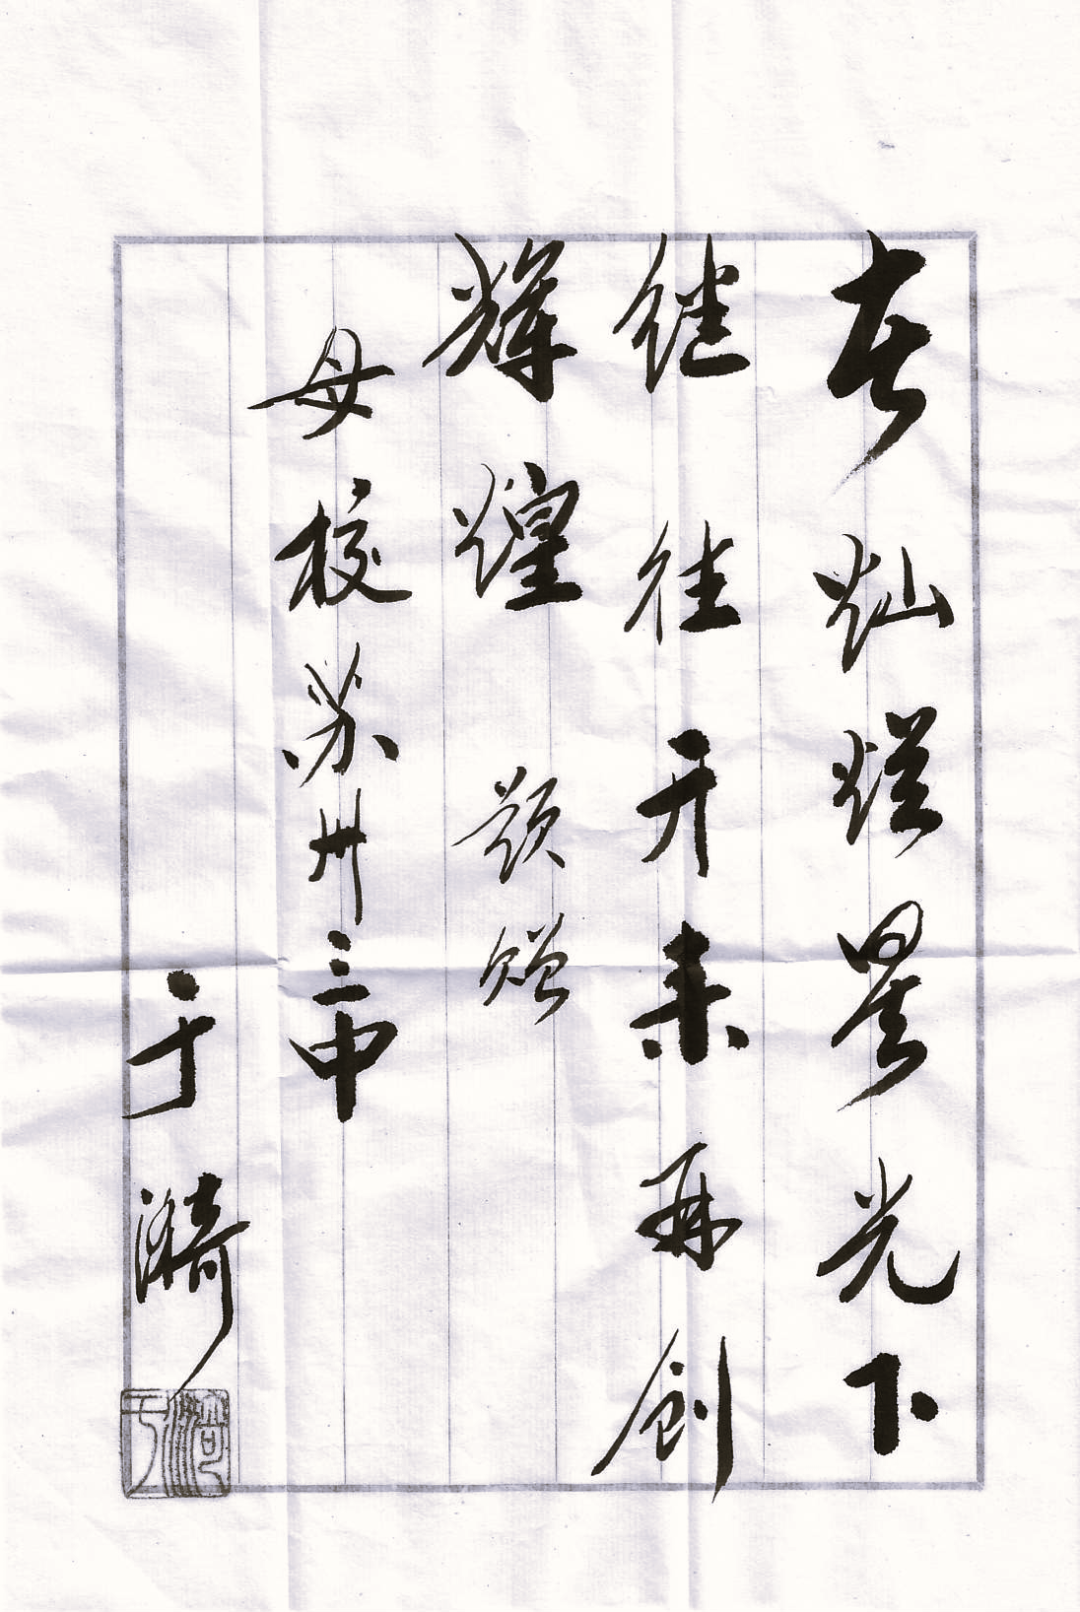 在灿烂星光下
继往开来再创
辉煌 题赠
母校苏州三中
于漪
于漪